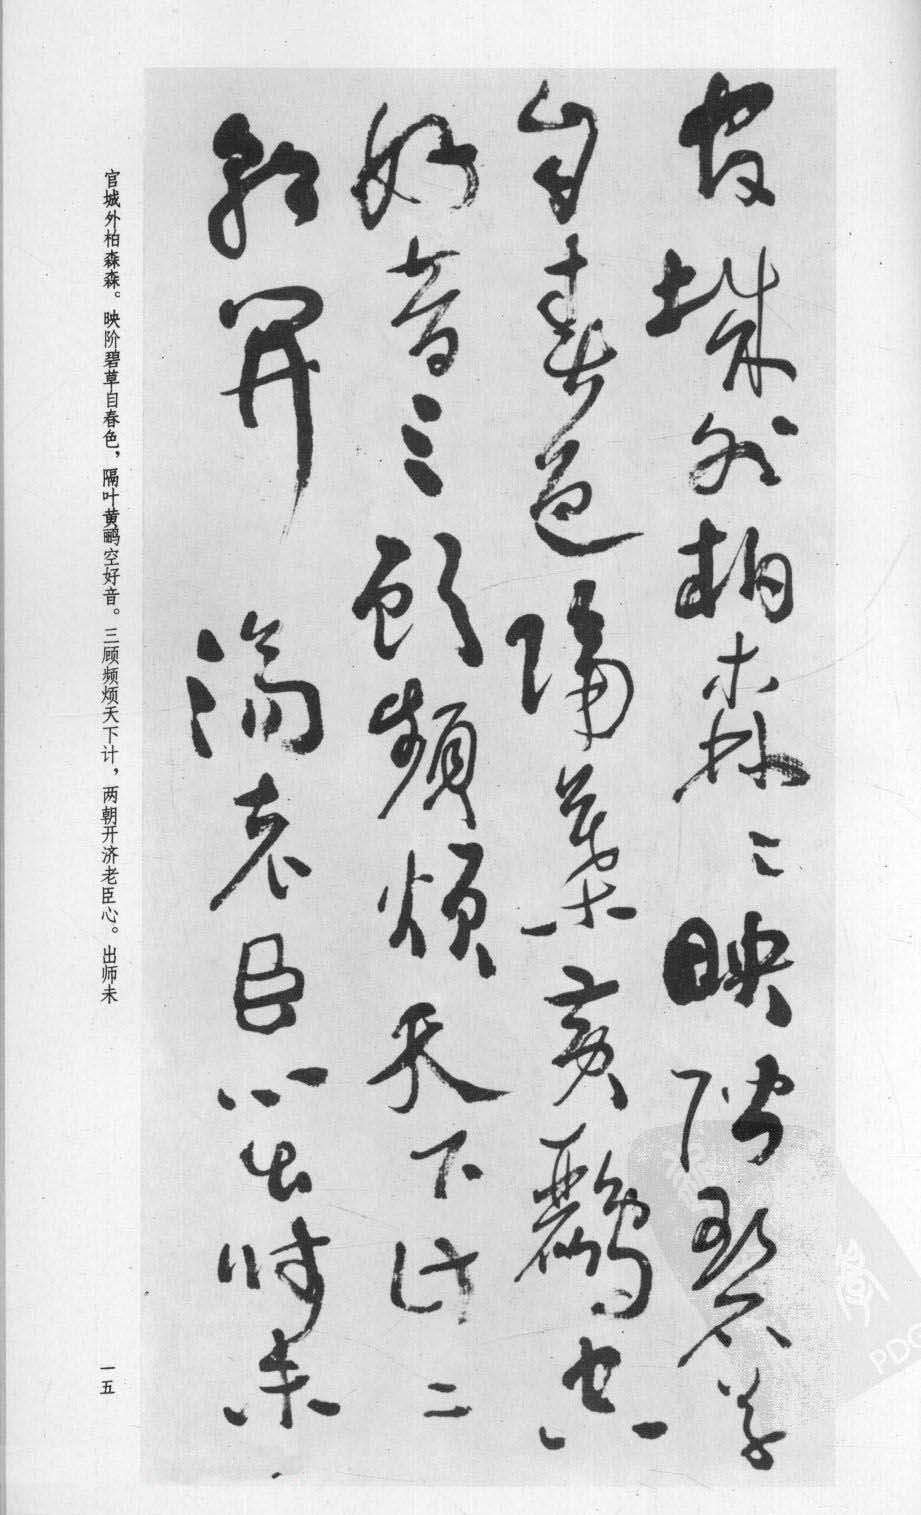 官城外柏森〻映階碧草
自春色隔葉黄鸝空
好音三顧頻煩天下計二
朝開濟老臣心出師未
官城外柏森森。映阶碧草自春色，隔叶黄鹂空好音。三顾频烦天下计，两朝开济老臣心。出师未
一五